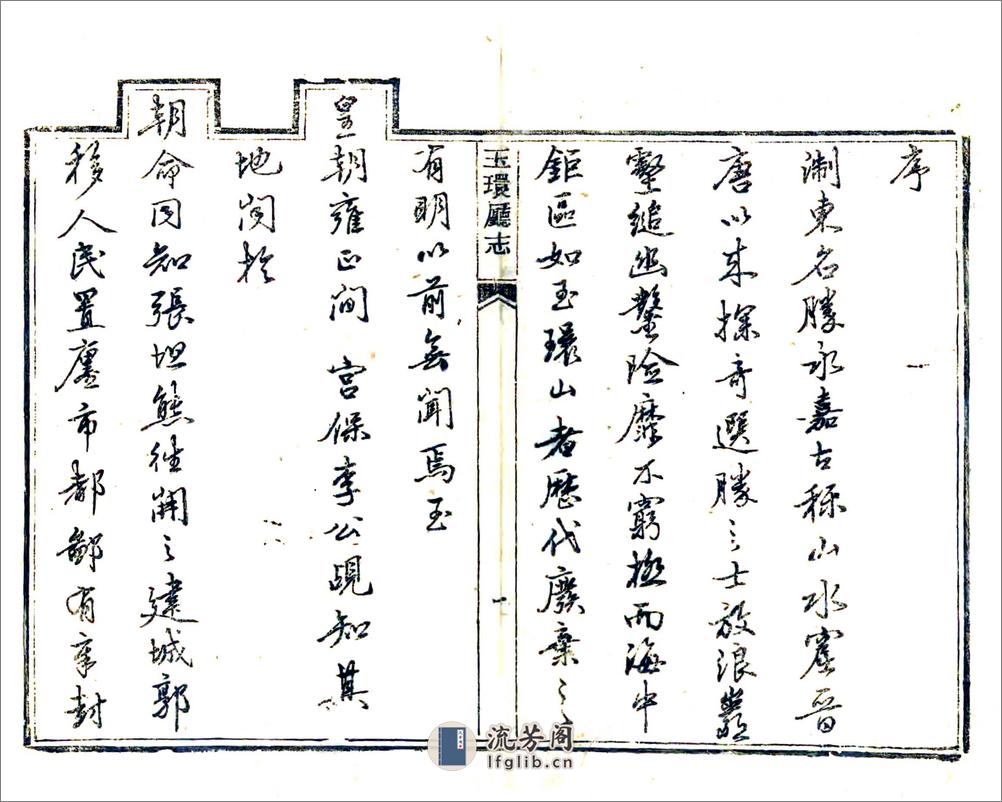 序
一
淛東名勝永嘉古稱山水窟晉
唐以來探奇選勝之士放浪巖
壑縋幽鑿險靡不窮極而海中
鉅區如玉環山者歷代廢棄之
玉環廳志
一
有明以前無聞焉至
皇朝雍正間 宮保李公覘知其
地閎於
朝命同知張坦熊往開之建城郭
移人民置廛市都鄙有章封
流芳阁
lfglib.cn